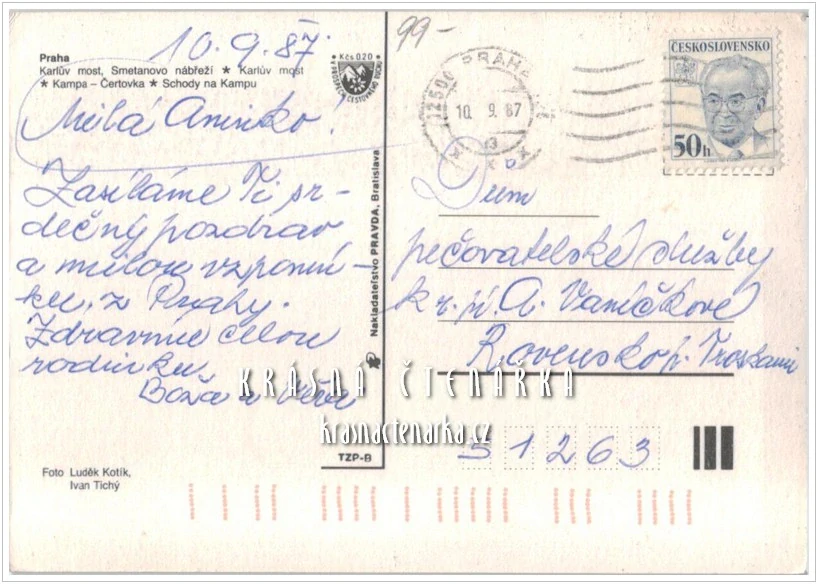 10. 9. 87.
99-
Praha
Karlův most, Smetanovo nábřeží ★ Karlův most
★ Kampa – Čertovka ★ Schody na Kampu
Kčs 0,20
Milá Aninko!
Zasíláme Ti sr-
dečný pozdrav
a milou vzpomín-
ku z Prahy.
Zdravíme celou
rodinku.
Boža a Věra
Foto Luděk Kotík,
Ivan Tichý
Nakladateľstvo PRAVDA, Bratislava
TZP-B
PRAHA
10. 9. 87
ČESKOSLOVENSKO
50h
Dům
pečovatelské služby
k r. p. A. Vaníčkové
Rovensko p. Troskami
51263
KRÁSNÁ ČTENÁŘKA
krasnactenarka.cz